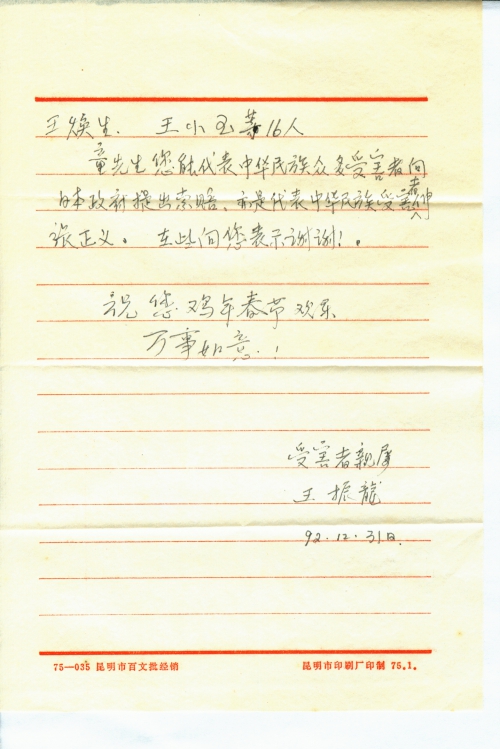 王焕生. 王小玉等16人
童先生您能代表中华民族众多受害者向
日本政府提出索赔. 亦是代表中华民族受害者伸
张正义。在此向您表示谢谢!。
祝您鸡年春节欢乐
万事如意.!
受害者亲属
王振龍
92.12.31日.
75—035 昆明市百文批经销
昆明市印刷厂印制 76.1.